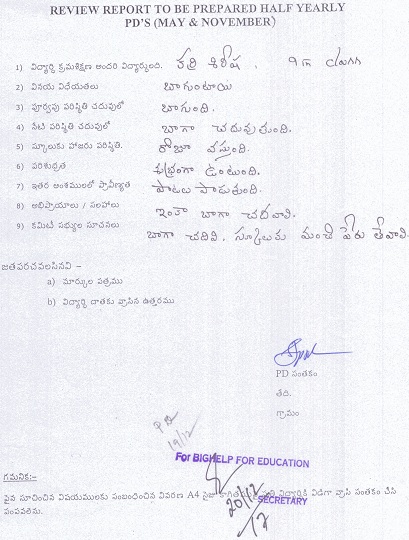 REVIEW REPORT TO BE PREPARED HALF YEARLY
PD'S (MAY & NOVEMBER)
1) విద్యార్థి క్రమశిక్షణ అందరి విద్యార్థులది. పత్రి శిరీష . 9th class
2) వినయ విధేయతలు బాగుంటాయి
3) పూర్వపు పరిస్థితి చదువులో బాగుంది.
4) నేటి పరిస్థితి చదువులో బాగా చదువుతుంది.
5) స్కూలుకు హాజరు పరిస్థితి. రోజూ వస్తుంది.
6) పరిశుభ్రత శుభ్రంగా ఉంటుంది.
7) ఇతర అంశములలో ప్రావీణ్యత పాటలు పాడుతుంది.
8) అభిప్రాయాలు / సలహాలు ఇంకా బాగా చదవాలి.
9) కమిటీ సభ్యుల సూచనలు బాగా చదివి, స్కూలుకు మంచి పేరు తేవాలి.
జతపరచవలసినవి –
a) మార్కుల పత్రము
b) విద్యార్థి దాతకు వ్రాసిన ఉత్తరము
PD సంతకం
తేది.
గ్రామం
PD
19/12
For BIGHELP FOR EDUCATION
SECRETARY
20/12
గమనిక:-
పైన సూచించిన విషయములకు సంబంధించిన వివరణ A4 సైజు విద్యార్థికి విడిగా వ్రాసి సంతకం చేసి
పంపవలెను.